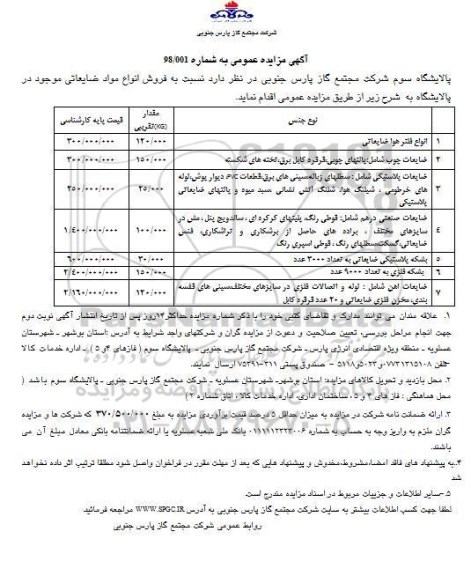 شرکت مجتمع گاز پارس جنوبی
آگهی مزایده عمومی به شماره 98/001
پالایشگاه سوم شرکت مجتمع گاز پارس جنوبی در نظر دارد نسبت به فروش انواع مواد ضایعاتی موجود در
پالایشگاه به شرح زیر از طریق مزایده عمومی اقدام نماید.
نوع جنس مقدار تقریبی(KG) قیمت پایه کارشناسی
۱ انواع فلتر هوا ضایعاتی ۱۲۰/۰۰۰ ۳۰۰/۰۰۰/۰۰۰
۲ ضایعات چوب شامل:پالتهای چوبی،قرقره کابل برق،تخته های شکسته ۱۵۰/۰۰۰ ۳۰۰/۰۰۰/۰۰۰
۳ ضایعات پلاستیکی شامل : سطلهای زباله،سینی های برق،قطعات PVC دیوار پوش،لوله
های خرطومی ، شیلنگ هوا، شلنگ آتش نشانی ،سبد میوه و پالتهای ضایعاتی
پلاستیکی ۲۵/۰۰۰ ۲۵۰/۰۰۰/۰۰۰
۴ ضایعات صنعتی درهم شامل: قوطی رنگ، پلیتهای کرکره ای ، ساندویچ پنل ، مش در
سایزهای مختلف ، براده های حاصل از برشکاری و تراشکاری، فنس
ضایعاتی،گسکت،سطلهای رنگ ، قوطی اسپری رنگ ۱۰۰/۰۰۰ ۱/۴۰۰/۰۰۰/۰۰۰
۵ بشکه پلاستیکی ضایعاتی به تعداد ۳۰۰۰ عدد ۳۰/۰۰۰ ۶۰۰/۰۰۰/۰۰۰
۶ بشکه فلزی به تعداد ۹۰۰۰ عدد ۱۵۰/۰۰۰ ۲/۴۰۰/۰۰۰/۰۰۰
۷ ضایعات آهن شامل : لوله و اتصالات فلزی در سایزهای مختلف،سینی های قفسه
بندی،مخزن فلزی ضایعاتی و ۲۰ عدد قرقره کابل ۱۲۰/۰۰۰ ۲/۱۶۰/۰۰۰/۰۰۰
۱. علاقه مندان می توانند مدارک و تقاضای کتبی خود را با ذکر شماره مزایده حداکثر۱۴روز پس از تاریخ انتشار آگهی نوبت دوم
جهت انجام مراحل بررسی، تعیین صلاحیت و دعوت از مزایده گران و شرکتهای واجد شرایط به آدرس :استان بوشهر ـ شهرستان
عسلویه ـ منطقه ویژه اقتصادی انرژی پارس ـ شرکت مجتمع گاز پارس جنوبی ـ پالایشگاه سوم ( فازهای ۴و ۵ ) ـ اداره خدمات کالا
ارسال نمایند.
۲. محل بازدید و تحویل کالاهای مزایده: استان بوشهر، شهرستان عسلویه ـ شرکت مجتمع گاز پارس جنوبی ـ پالایشگاه سوم باشد (
محل هماهنگی : فاز های ۴ و ۵ ، ساختمان اداری، اداره خدمات کالا ، اتاق شماره ۲)
۳. ارائه ضمانت نامه شرکت در مزایده به میزان حداقل ۵ درصد قیمت برآوردی مزایده به مبلغ ۳۷۰/۵۰۰/۰۰۰ که شرکت ها و مزایده
گران ملزم به واریز وجه به حساب به شماره بانک ملی شعبه عسلویه یا ارائه ضمانتنامه بانکی معادل مبلغ آن می
باشند.
۴.به پیشنهاد های فاقد امضاء،مشروط،مخدوش و پیشنهاد هایی که بعد از مهلت مقرر در فراخوان واصل شود مطلقا ترتیب اثر داده نخواهد
شد
۵-سایر اطلاعات و جزییات مربوط در اسناد مزایده مندرج است.
لطفا جهت کسب اطلاعات بیشتر به سایت شرکت مجتمع گاز پارس جنوبی به آدرس WWW.SPGC.IR مراجعه فرمائید
روابط عمومی شرکت مجتمع گاز پارس جنوبی